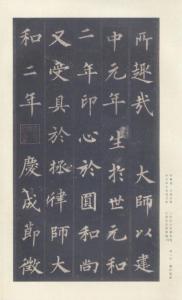 所趣哉　大師以建
中元年生於世元和
二年印心於圓和尚
又受具於拯律師大
和二年　慶成節徵